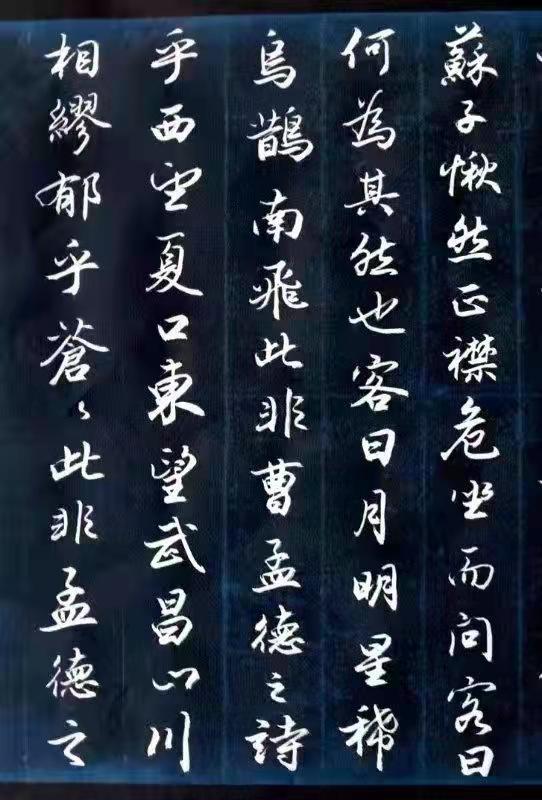 蘇子愀然正襟危坐而问客曰
何為其然也客曰月明星稀
烏鵲南飛此非曹孟德之詩
乎西望夏口東望武昌山川
相繆郁乎蒼〻此非孟德之